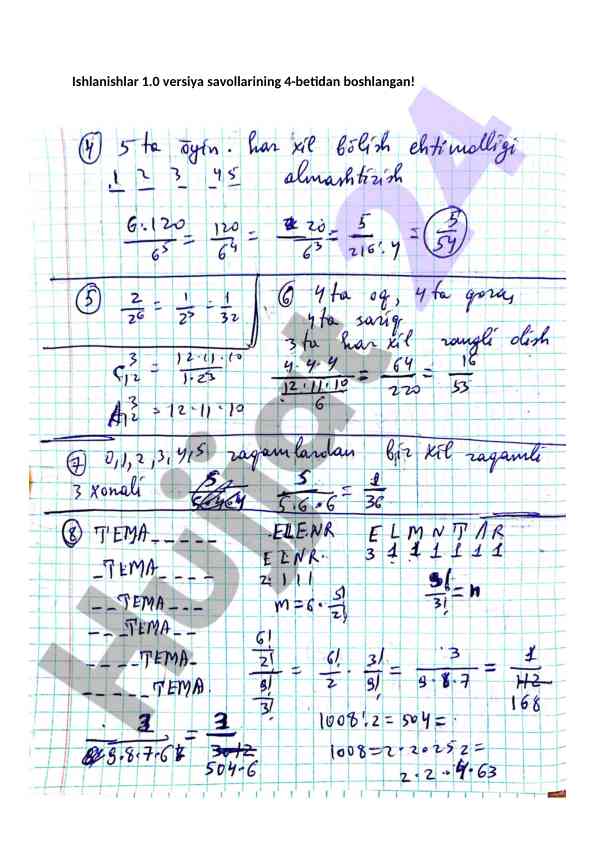 Ishlanishlar 1.0 versiya savollarining 4-betidan boshlangan!
4 5 ta o'yin. har xil bo'lish ehtimolligi
1 2 3 4 5 almashtirish
6·120/6^5 = 120/6^4 = 20/6^3 = 5/216:4 = 5/54
5 2/2^6 = 1/2^5 = 1/32
6 4 ta oq, 4 ta qora,
4 ta sariq
3 ta har xil rangli olish
C^3_12 = 12·11·10/1·23
4·4·4/(12·11·10/6) = 64/220 = 16/55
A^3_12 = 12·11·10
7 0,1,2,3,4,5 raqamlardan bir xil raqamli
3 xonali 5/5·6·6 = 1/36
8 TEMA_ _ _ _ _
_TEMA_ _ _ _
_ _TEMA_ _ _
_ _ _TEMA_ _
_ _ _ _TEMA_
_ _ _ _ _TEMA
ELENR
ELNR
2 1 1 1
m = 6·5!/2!
E L M N T A R
3 1 1 1 1 1 1
9!/3! = n
(6!/2!)/(9!/3!) = 6!/2 · 3!/9! = 3/9·8·7 = 1/168
1008:2 = 504 =
1008 = 2·2·252 =
2·2·4·63
3/9·8·7·6 = 3/504·6
Hujjat 24